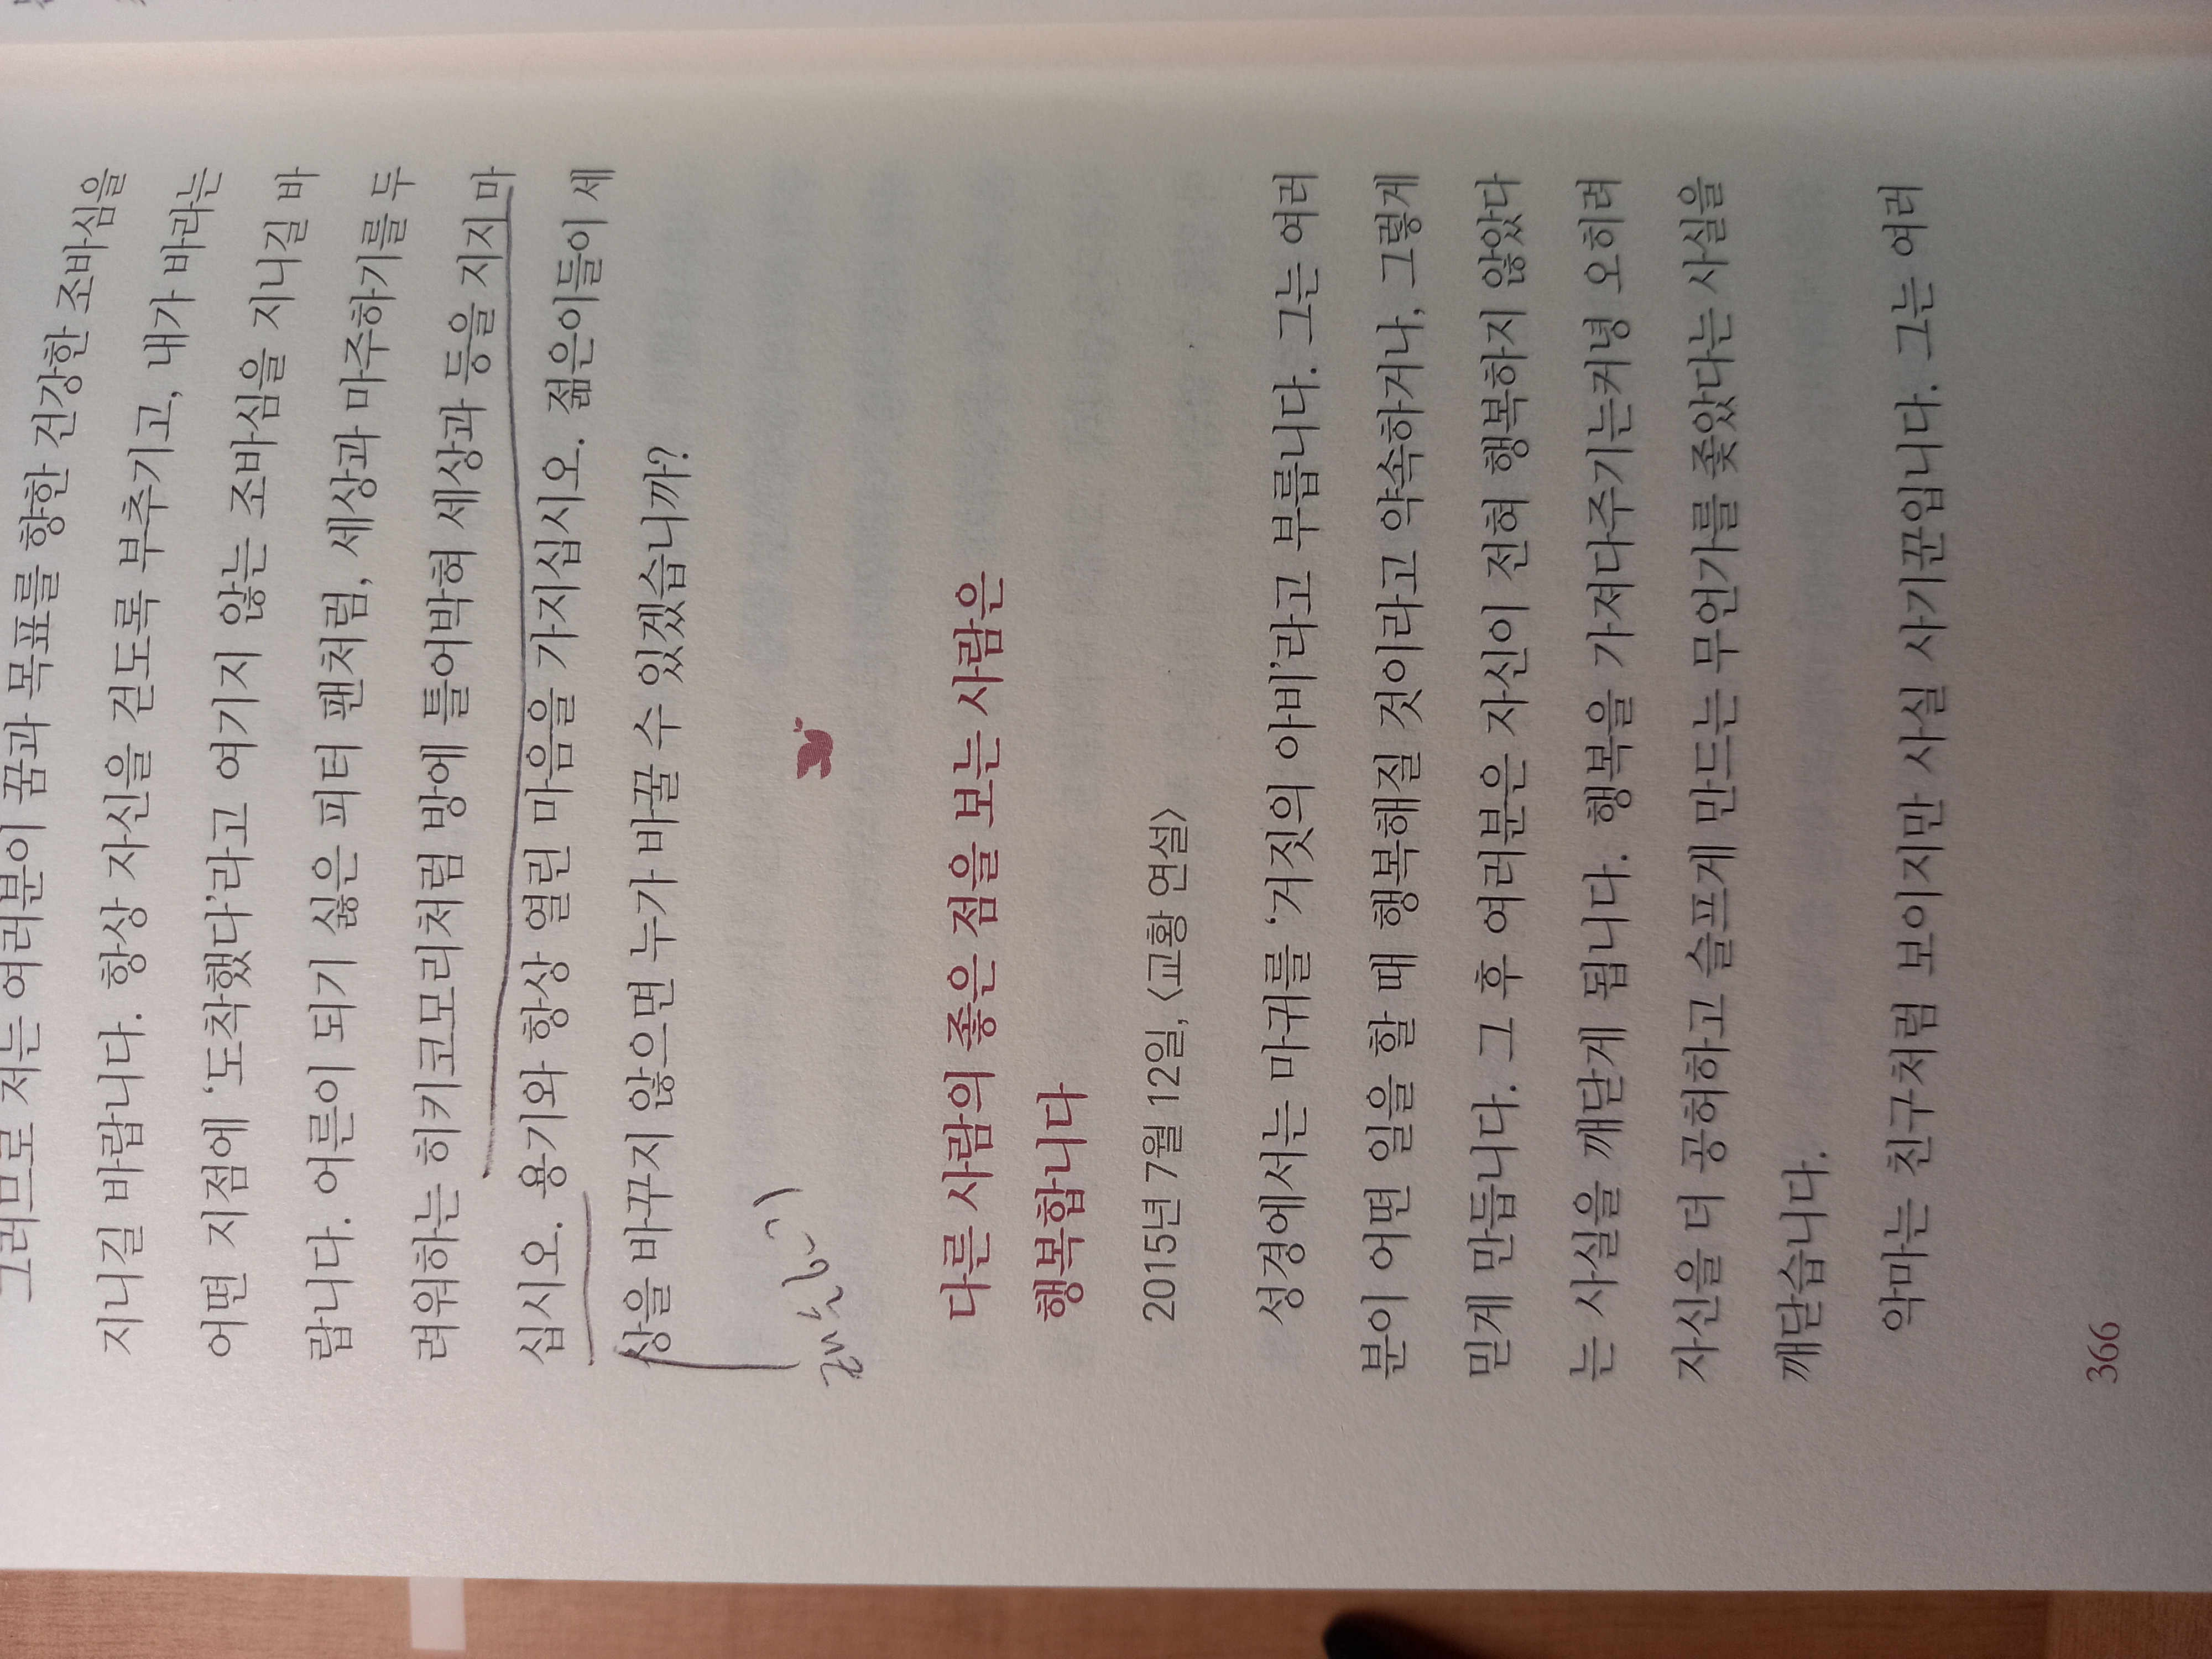 그러므로 저는 여러분이 꿈과 목표를 향한 건강한 조바심을
지니길 바랍니다. 항상 자신을 걷도록 부추기고, 내가 바라는
어떤 지점에 ‘도착했다’라고 여기지 않는 조바심을 지니길 바
랍니다. 어른이 되기 싫은 피터 팬처럼, 세상과 마주하기를 두
려워하는 히키코모리처럼 방에 틀어박혀 세상과 등을 지지 마
십시오. 용기와 항상 열린 마음을 가지십시오. 젊은이들이 세
상을 바꾸지 않으면 누가 바꿀 수 있겠습니까?
다른 사람의 좋은 점을 보는 사람은
행복합니다
2015년 7월 12일, 〈교황 연설〉
성경에서는 마귀를 ‘거짓의 아비’라고 부릅니다. 그는 여러
분이 어떤 일을 할 때 행복해질 것이라고 약속하거나, 그렇게
믿게 만듭니다. 그 후 여러분은 자신이 전혀 행복하지 않았다
는 사실을 깨닫게 됩니다. 행복을 가져다주기는커녕 오히려
자신을 더 공허하고 슬프게 만드는 무언가를 좇았다는 사실을
깨닫습니다.
악마는 친구처럼 보이지만 사실 사기꾼입니다. 그는 여러
366